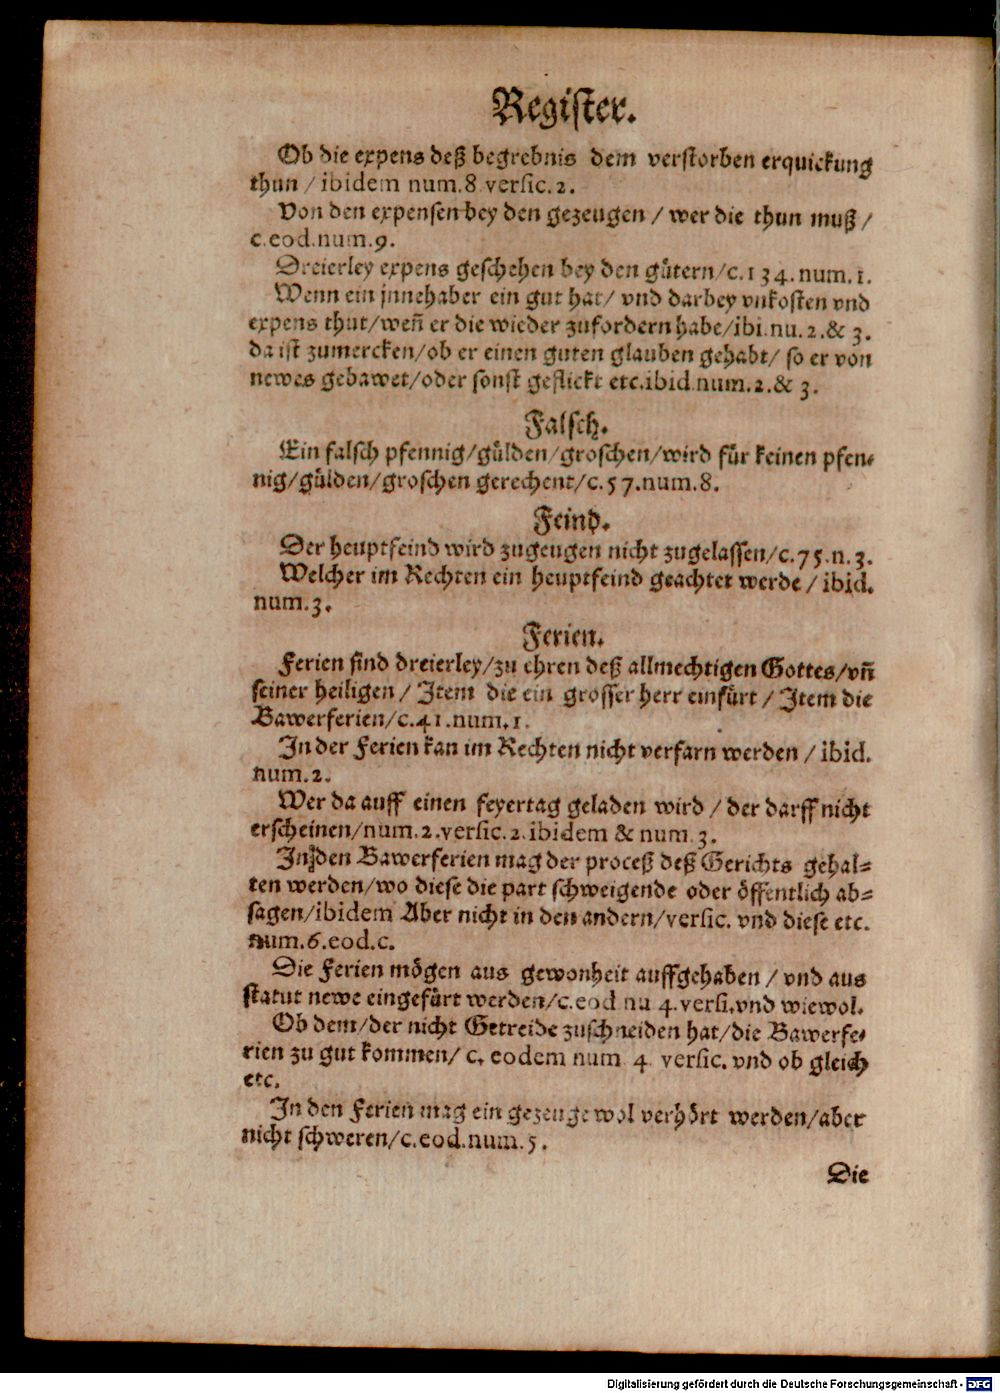 Register.
Ob die expens deß begrebnis dem verstorben erquickung
thun / ibidem num.8 versic.2.
Von den expensen bey den gezeugen / wer die thun muß /
c.eod.num.9.
Dreierley expens geschehen bey den gütern/c.134.num.1.
Wenn ein jnnehaber ein gut hat/ vnd darbey vnkosten vnd
expens thut/weñ er die wieder zufordern habe/ibi.nu.2.& 3.
da ist zumercken/ob er einen guten glauben gehabt/ so er von
newes gebawet/oder sonst geflickt etc.ibid.num.2.& 3.
Falsch.
Ein falsch pfennig/gülden/groschen/wird für keinen pfen-
nig/gülden/groschen gerechent/c.57.num.8.
Feind.
Der heuptfeind wird zugeugen nicht zugelassen/c.75.n.3.
Welcher im Rechten ein heuptfeind geachtet werde / ibid.
num.3.
Ferien.
Ferien sind dreierley/zu ehren deß allmechtigen Gottes/vñ
seiner heiligen / Item die ein grosser herr einfürt / Item die
Bawerferien/c.41.num.1.
In der Ferien kan im Rechten nicht verfarn werden / ibid.
num.2.
Wer da auff einen feyertag geladen wird / der darff nicht
erscheinen/num.2.versic.2.ibidem & num.3.
In den Bawerferien mag der proceß deß Gerichts gehal-
ten werden/wo diese die part schweigende oder öffentlich ab-
sagen/ibidem Aber nicht in den andern/versic. vnd diese etc.
num.6.eod.c.
Die Ferien mögen aus gewonheit auffgehaben / vnd aus
statut newe eingefürt werden/c.eod nu 4.versi.vnd wiewol.
Ob dem/der nicht Getreide zuschneiden hat/die Bawerfe-
rien zu gut kommen/ c. eodem num 4 versic. vnd ob gleich
etc.
In den Ferien mag ein gezeuge wol verhört werden/aber
nicht schweren/c.eod.num.5.
Die
Digitalisierung gefördert durch die Deutsche Forschungsgemeinschaft - DFG